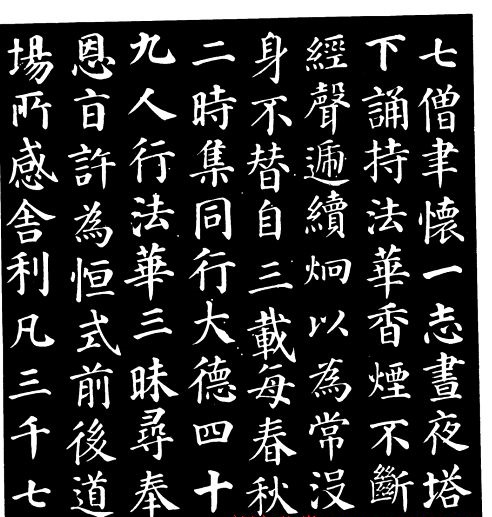 七僧聿懷一志晝夜塔
下誦持法華香煙不斷
經聲遞續炯以為常沒
身不替自三載每春秋
二時集同行大德四十
九人行法華三昧尋奉
恩旨許為恒式前後道
場所感舍利凡三千七